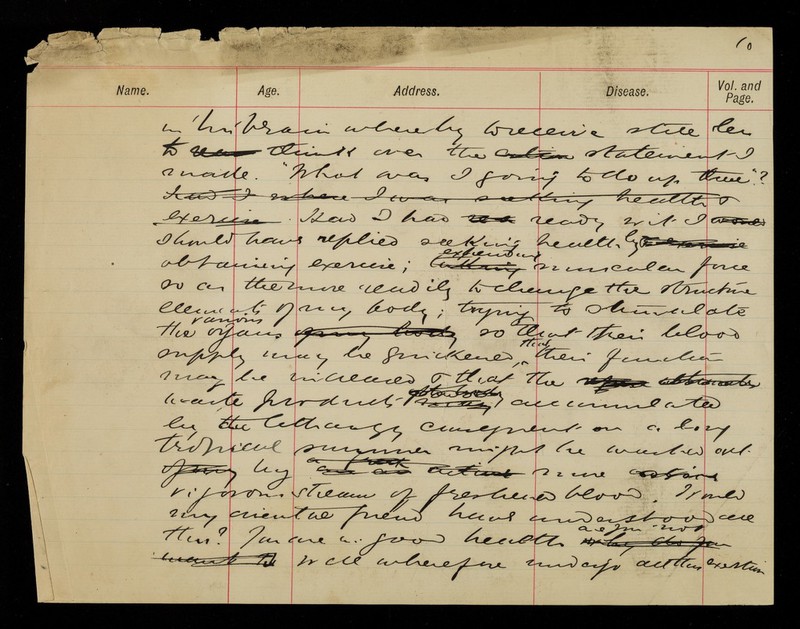 10
Name. Age. Address. Disease. Vol. and Page.
in his brain whereby to receive still less
to think over the statement I
made. "What was I going to do up there"?
had I where I was seeking health &
exercise. Had I had ready wit I would
should have replied seeking health by exercise
obtaining exercise; expending muscular force
so as the more readily to change the structure
elements of my body; trying to stimulate
the various organs of my body so that their blood
supply may be quickened, that their function
may be increased & that the
waste products of the body accumulated
by the lethargy consequent on a long
tropical summer might be washed out
by a fresh more
vigorous stream of freshened blood. Would
my oriental friend have understood all
this? You are in good health are you not
want to well wherefore undergo all this exertion